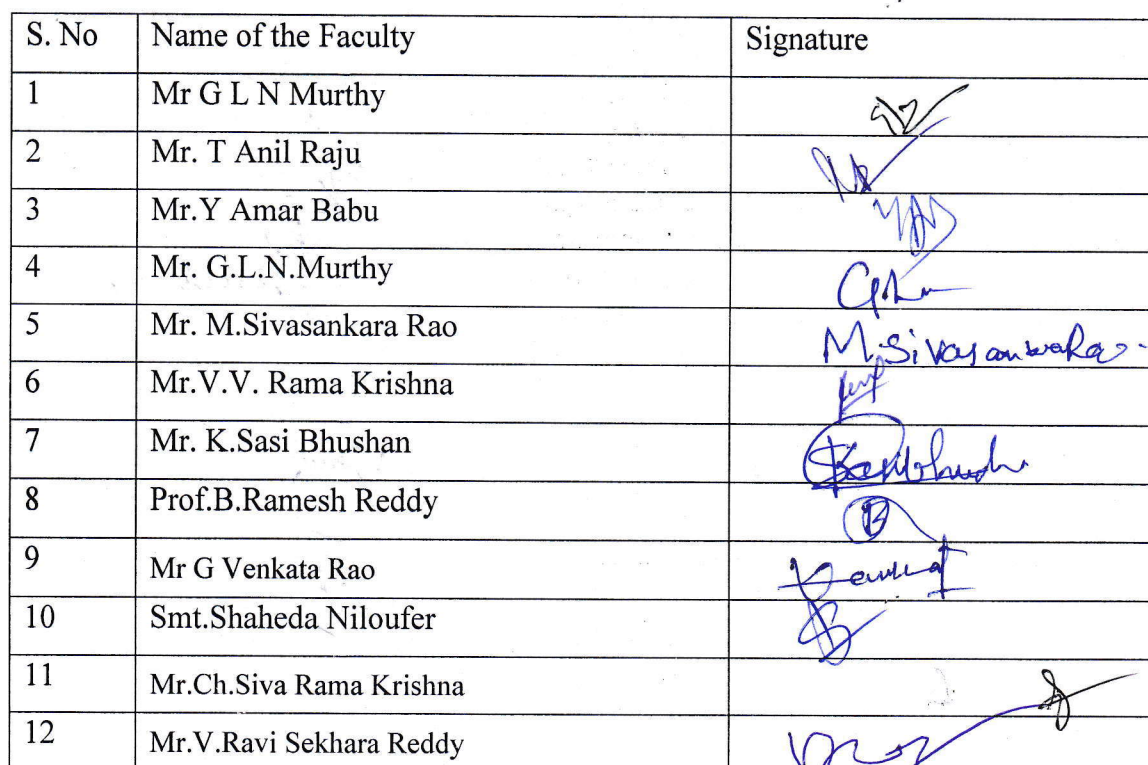 S. No Name of the Faculty Signature
1 Mr G L N Murthy
2 Mr. T Anil Raju
3 Mr.Y Amar Babu
4 Mr. G.L.N.Murthy
5 Mr. M.Sivasankara Rao M.SivasankaraRao
6 Mr.V.V. Rama Krishna
7 Mr. K.Sasi Bhushan
8 Prof.B.Ramesh Reddy B
9 Mr G Venkata Rao
10 Smt.Shaheda Niloufer
11 Mr.Ch.Siva Rama Krishna
12 Mr.V.Ravi Sekhara Reddy